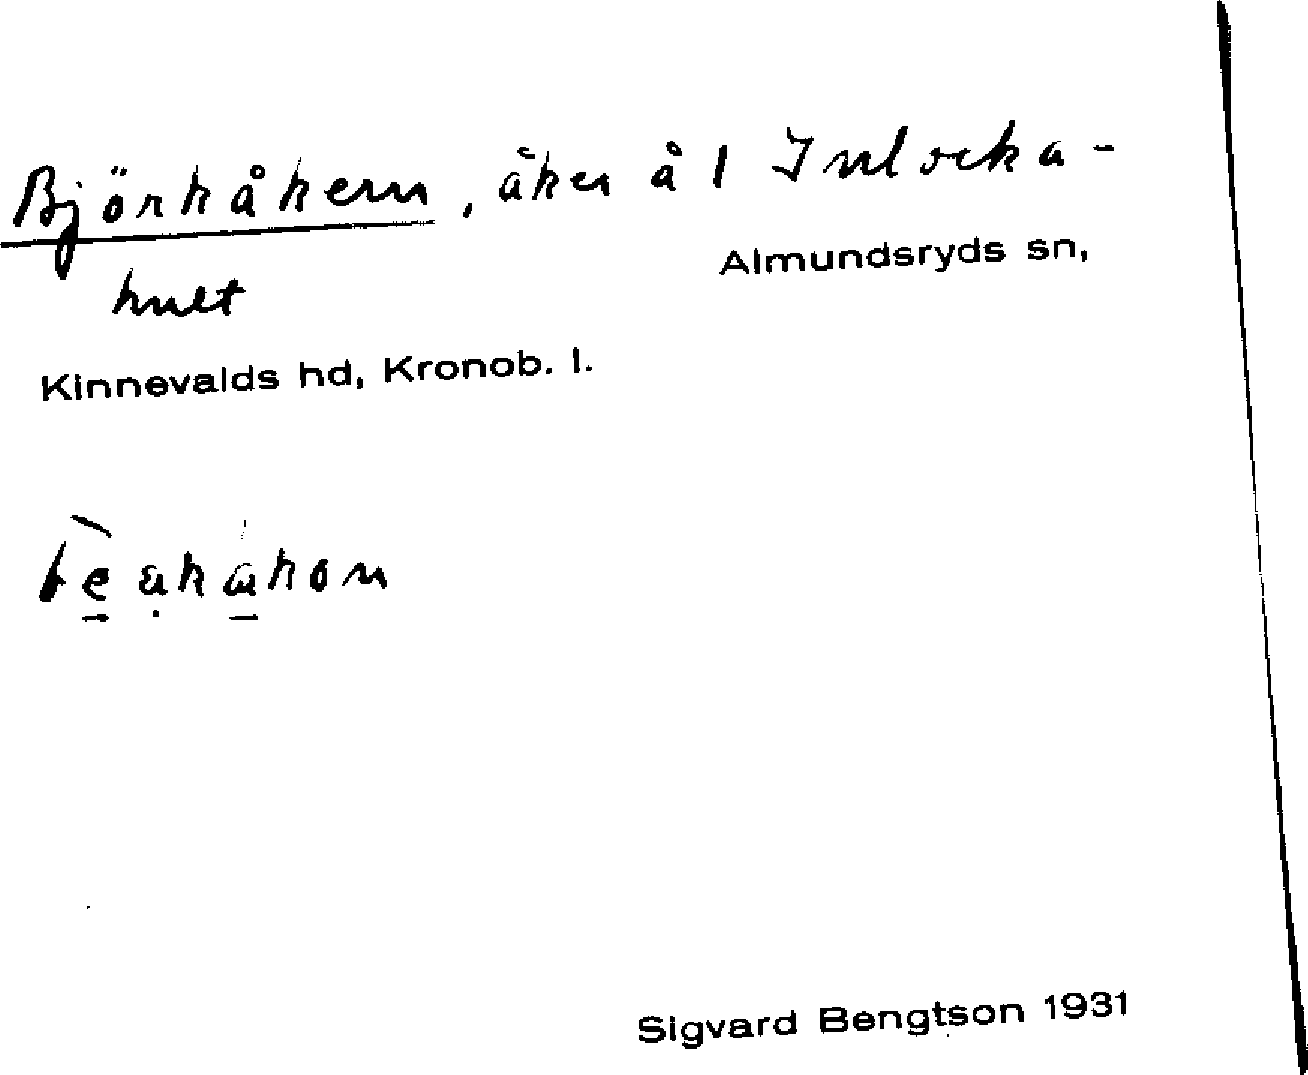 Björkåkern, åker å 1 Inlocka-
Almundsryds sn,
hult
Kinnevalds hd, Kronob. l.
Sigvard Bengtson 1931